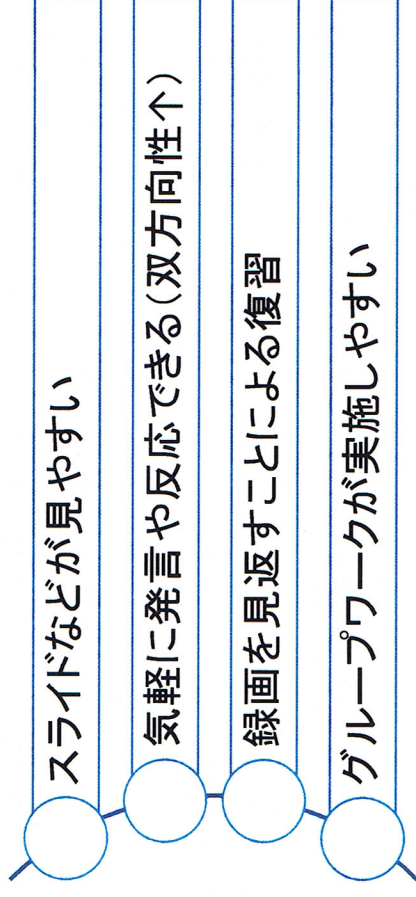 スライドなどが見やすい
気軽に発言や反応できる(双方向性↑)
録画を見返すことによる復習
グループワークが実施しやすい